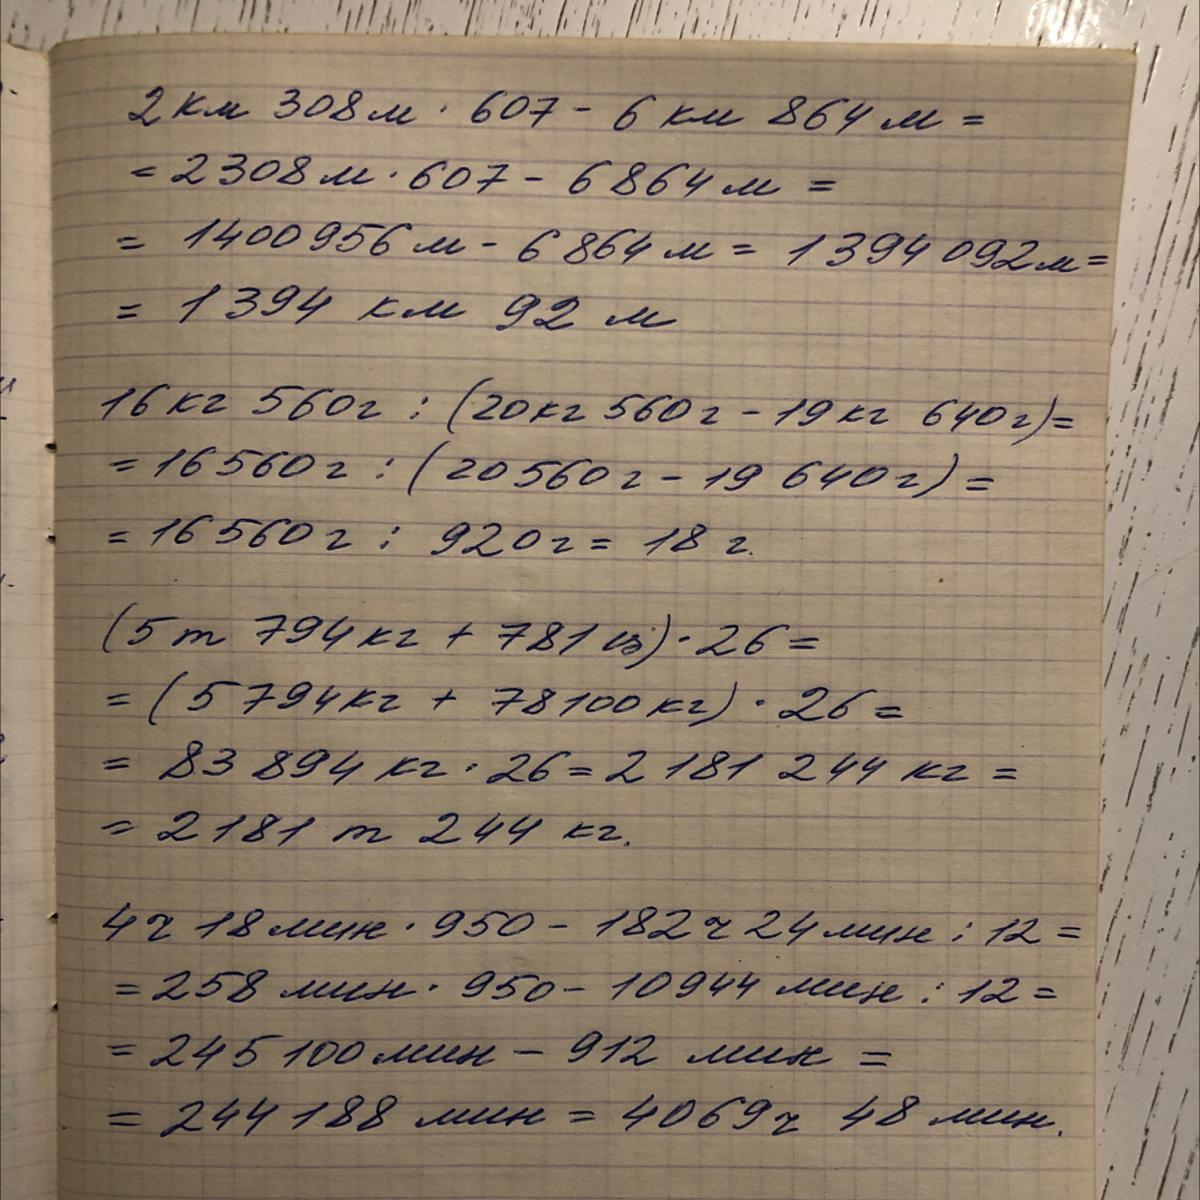 2 км 308 м · 607 - 6 км 864 м =
= 2308 м · 607 - 6864 м =
= 1400956 м - 6864 м = 1394092 м =
= 1394 км 92 м
16 кг 560 г : (20 кг 560 г - 19 кг 640 г) =
= 16560 г : (20560 г - 19 640 г) =
= 16560 г : 920 г = 18 г.
(5 т 794 кг + 781 ц) · 26 =
= (5794 кг + 78100 кг) · 26 =
= 83 894 кг · 26 = 2 181 244 кг =
= 2181 т 244 кг.
4 ч 18 мин · 950 - 182 ч 24 мин : 12 =
= 258 мин · 950 - 10944 мин : 12 =
= 245 100 мин - 912 мин =
= 244 188 мин = 4069 ч 48 мин.